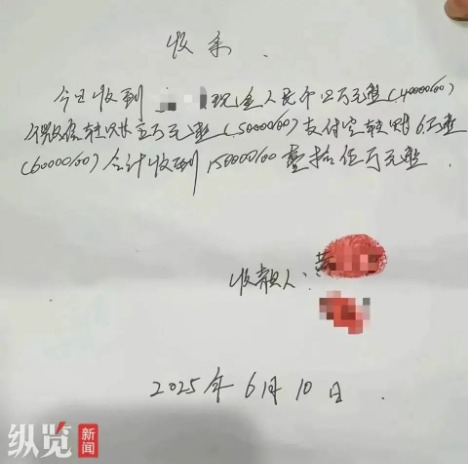 收条
今日收到 现金人民币四万元整(40000.00)
微信转账五万元整(50000.00)支付宝转账6万整
(60000.00)合计收到150000.00壹拾伍万元整
收款人:黄
2025年6月10日
纵览新闻